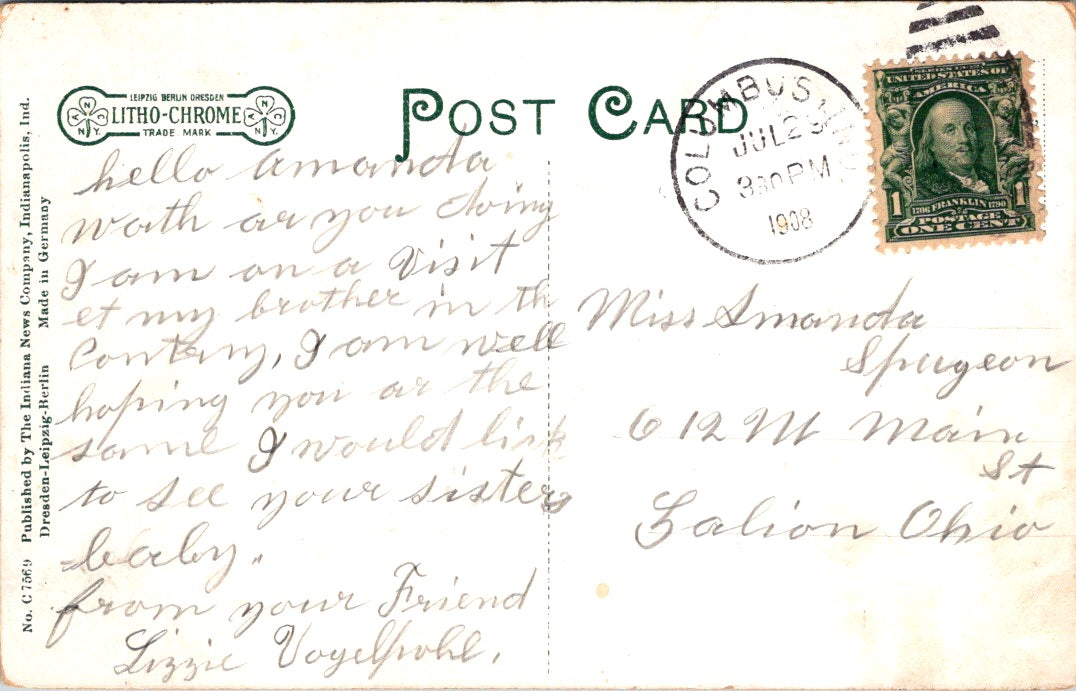 LEIPZIG BERLIN DRESDEN
LITHO-CHROME
TRADE MARK
A N C N.Y.
A N C N.Y.
POST CARD
COLUMBUS, IND.
JUL 29
3 30 PM
1908
SERIES 1902
UNITED STATES OF
AMERICA
1 1
1706 FRANKLIN 1790
POSTAGE
ONE CENT
hello Amanda
wath ar you doing
I am on a Visit
et my brother in th
Contery, I am well
hoping you ar the
same I would link
to see your sisters
baby.
from your Friend
Lizzie Vogelpohl.
Miss Amanda
Spurgeon
612 W Main
St
Galion Ohio
No. C 7569 Published by The Indiana News Company, Indianapolis, Ind.
Dresden-Leipzig-Berlin Made in Germany